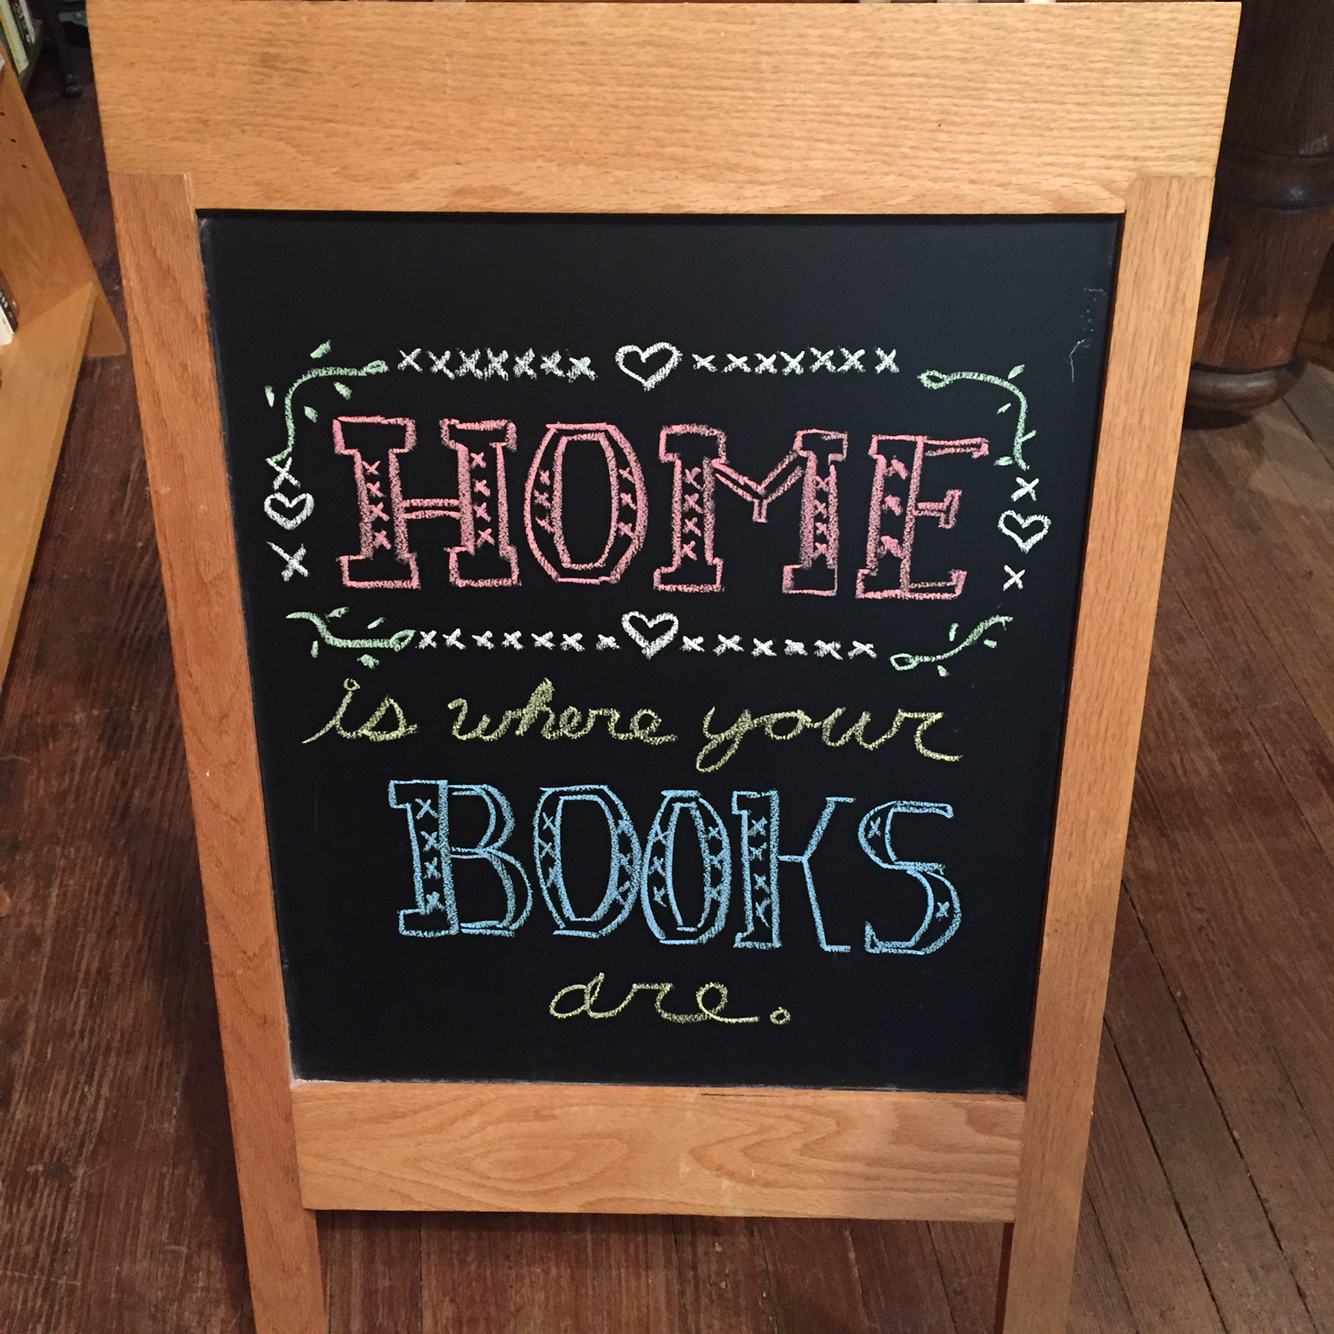 HOME
is where your
BOOKS
are.